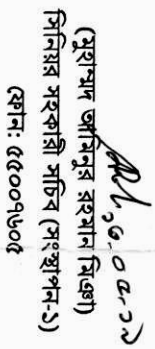 (মুহাম্মদ আমিনুর রহমান মিঞা)
সিনিয়র সহকারী সচিব (সংস্থাপন-১)
ফোন: ৫৫০০৭৬০৫